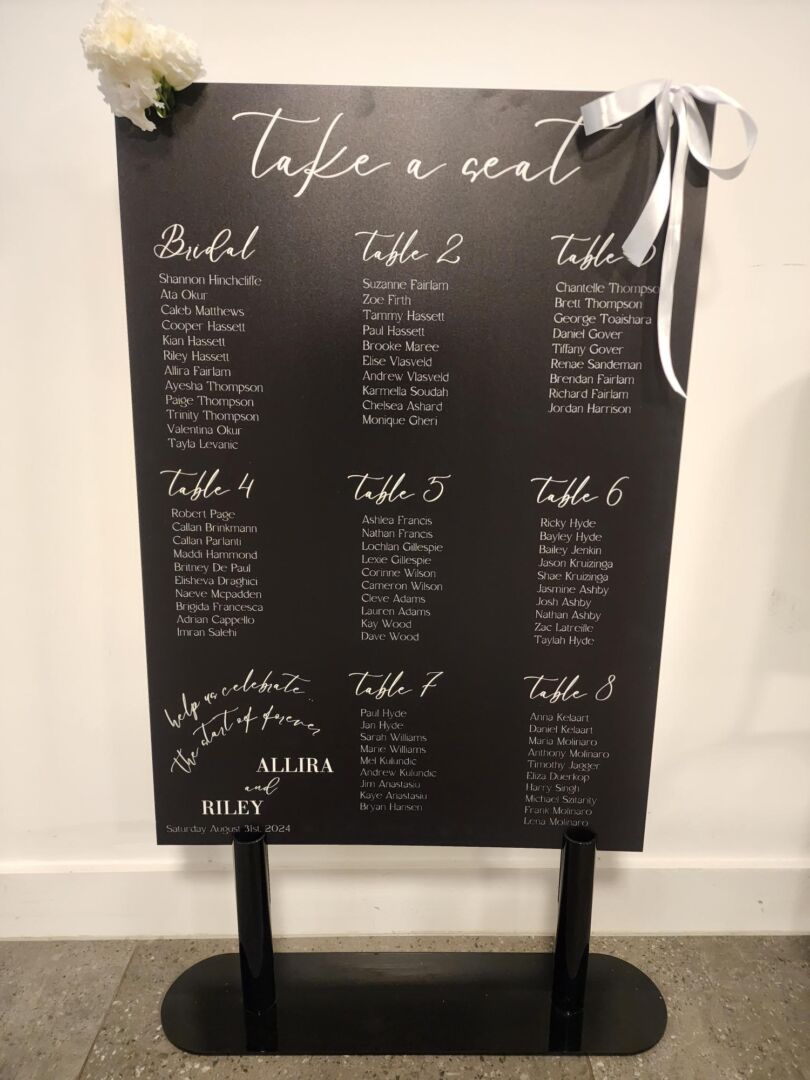 take a seat
Bridal
Shannon Hinchcliffe
Ata Okur
Caleb Matthews
Cooper Hassett
Kian Hassett
Riley Hassett
Allira Fairlam
Ayesha Thompson
Paige Thompson
Trinity Thompson
Valentina Okur
Tayla Levanic
table 2
Suzanne Fairlam
Zoe Firth
Tammy Hassett
Paul Hassett
Brooke Maree
Elise Vlasveld
Andrew Vlasveld
Karmella Soudah
Chelsea Ashard
Monique Gheri
table
Chantelle Thompso
Brett Thompson
George Toaishara
Daniel Gover
Tiffany Gover
Renae Sandeman
Brendan Fairlam
Richard Fairlam
Jordan Harrison
table 4
Robert Page
Callan Brinkmann
Callan Parlanti
Maddi Hammond
Britney De Paul
Elisheva Draghici
Naeve Mcpadden
Brigida Francesca
Adrian Cappello
Imran Salehi
table 5
Ashlea Francis
Nathan Francis
Lochlan Gillespie
Lexie Gillespie
Corinne Wilson
Cameron Wilson
Cleve Adams
Lauren Adams
Kay Wood
Dave Wood
table 6
Ricky Hyde
Bayley Hyde
Bailey Jenkin
Jason Kruizinga
Shae Kruizinga
Jasmine Ashby
Josh Ashby
Nathan Ashby
Zac Latreille
Taylah Hyde
help us celebrate..
the start of forever
ALLIRA
and
RILEY
Saturday August 31st, 2024
table 7
Paul Hyde
Jan Hyde
Sarah Williams
Marie Williams
Mel Kulundic
Andrew Kulundic
Jim Anastasiu
Kaye Anastasiu
Bryan Hansen
table 8
Anna Kelaart
Daniel Kelaart
Maria Molinaro
Anthony Molinaro
Timothy Jagger
Eliza Duerkop
Harry Singh
Michael Szitanty
Frank Molinaro
Lena Molinaro